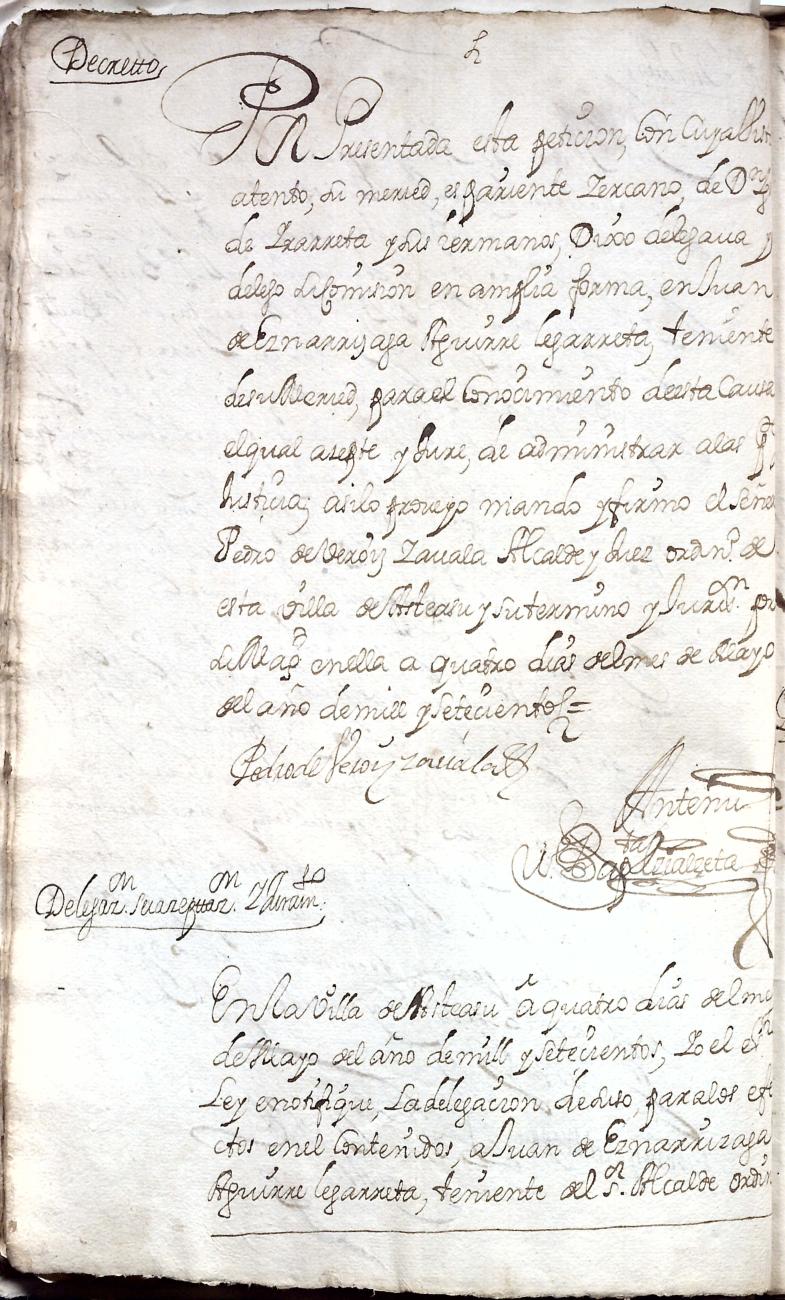 Decretto
Por Presentada esta peticion, Con Cuya Vist
atento, su merced, es pariente Zercano, de Dn
de Yrarreta y sus hermanos, Dixo delegava y
delego su Comision en amplia forma, en Juan
de Eznarrizaga Aguirre legarreta, teniente
de su Merced, para el Conocimiento de esta Causa
el qual azepte y Jure, de administrar a las
Justicia; asi lo proveyo mando y firmo el Señor
Pedro de Veroiz Zavala Alcalde y Juez ordinº de
esta Villa de Asteasu y su termino y Jurisn. por
su Magd en ella a quatro dias del mes de Mayo
del año de mill y setecientos =
Pedro de Veroiz Zavala
Antemi
Delegazn. su azeptazn. y Juramto
En la Villa de Asteasu â quatro dias del mes
de Mayo del año de mill y setecientos, Yo el es
Ley e notifique, La delegacion de suso, para los efe
ctos en el Contenidos, a Juan de Eznarrizaga
Aguirre legarreta, teniente del sr. Alcalde ordin